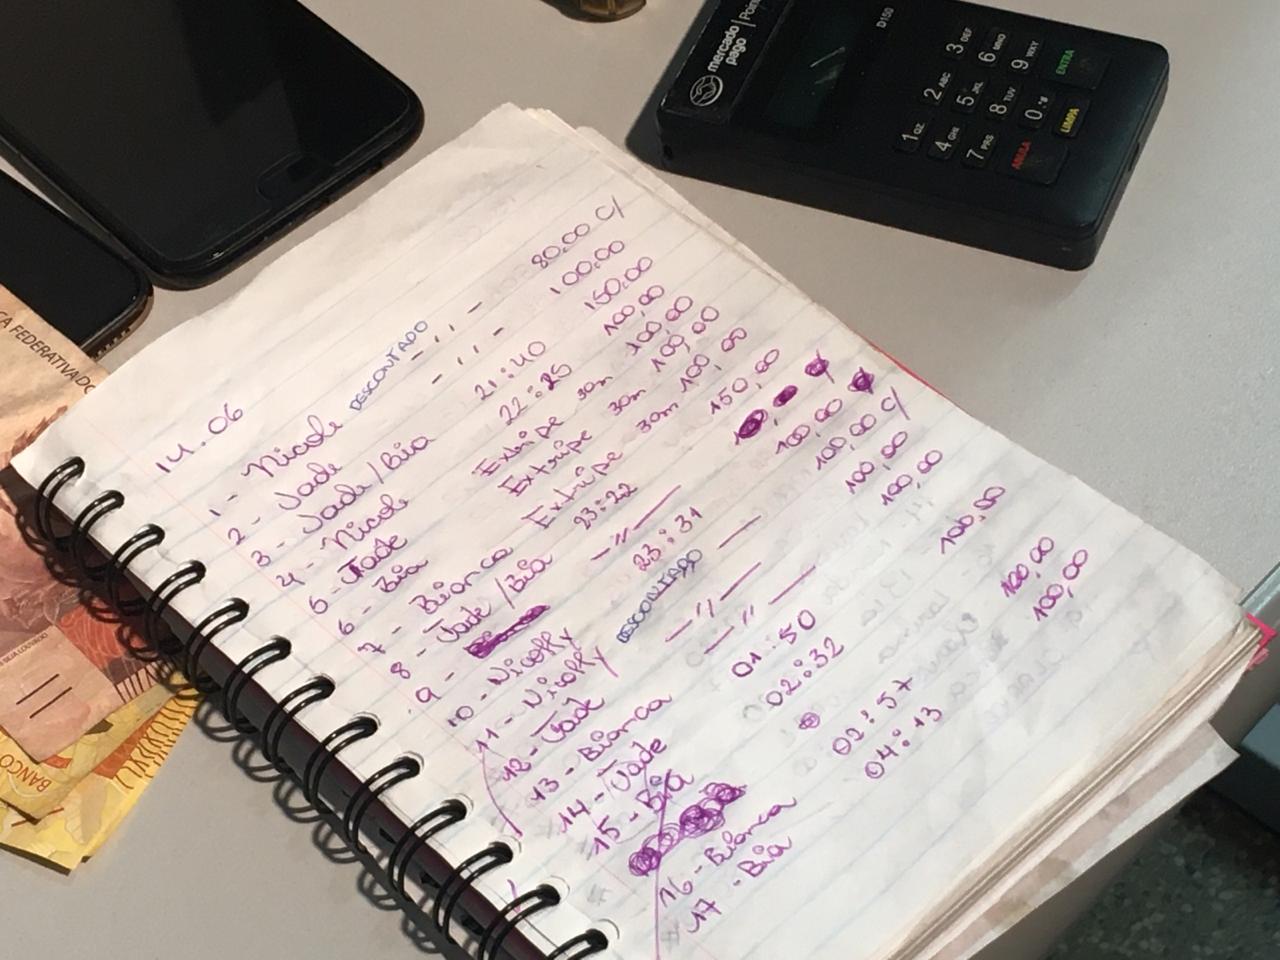 14.06
1 - Nicole DESCONTADO - , , - 80,00 C/
2 - Jade - , , - 100,00
3 - Jade/Bia 21:40 150,00
4 - Nicole 22:25 100,00
5 - Jade Extripe 30m 100,00
6 - Bia Extripe 30m 100,00
7 - Bianca Extripe 30m 100,00
8 - Jade/Bia 23:22 150,00
9 -
10 - Nicolly 23:31 100,00
11 - Nicolly DESCONTADO 100,00 C/
12 - Jade 100,00
13 - Bianca 100,00
14 - Jade 01:50
15 - Bia 02:32 100,00
16 - Bianca 02:57 100,00
17 - Bia 04:13 100,00
mercado
pago
Point
D150
1 QZ
2 ABC
3 DEF
4 GHI
5 JKL
6 MNO
7 PRS
8 TUV
9 WXY
0
ANULA
LIMPA
ENTRA
CA FEDERATIVA DO
BANCO